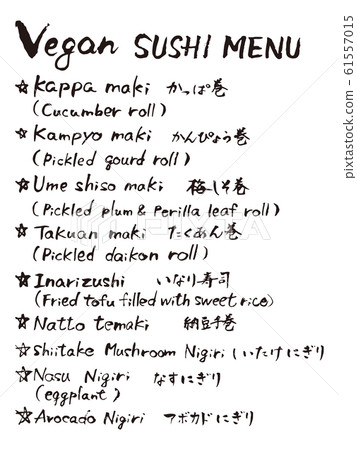 Vegan SUSHI MENU
☆ Kappa maki かっぱ巻
(Cucumber roll)
☆ Kampyo maki かんぴょう巻
(Pickled gourd roll)
☆ Ume shiso maki 梅しそ巻
(Pickled plum & Perilla leaf roll)
☆ Takuan maki たくあん巻
(Pickled daikon roll)
☆ Inarizushi いなり寿司
(Fried tofu filled with sweet rice)
☆ Natto temaki 納豆手巻
☆ Shiitake Mushroom Nigiri しいたけにぎり
☆ Nasu Nigiri なすにぎり
(eggplant)
☆ Avocado Nigiri アボカドにぎり
PIXTA
pixtastock.com - 61557015